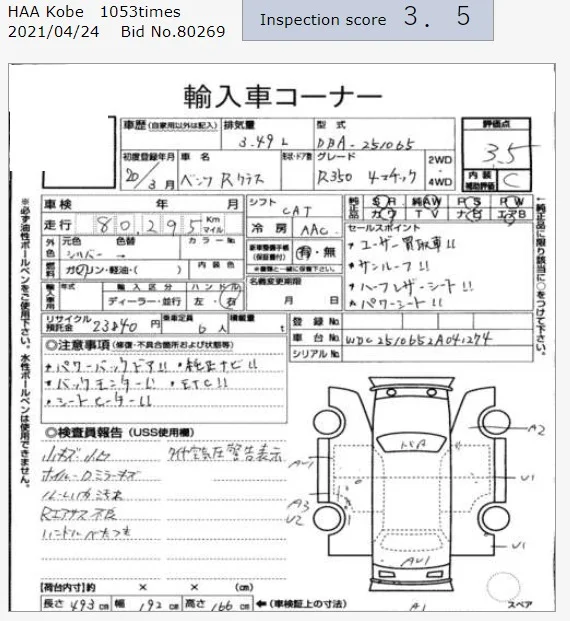 HAA Kobe 1053times
2021/04/24 Bid No.80269
Inspection score 3. 5
輸入車コーナー
車歴 (自家用以外は記入) 排気量 3.49 L 型式 DBA-251065 評価点 3.5
初度登録年月 20/3月 車名 ベンツ Rクラス 形状・ドア数 グレード R350 4マチック 2WD・4WD 内装補助評価 C
車検 年 月 シフト CAT 純正品 SR 純AW PS PW
走行 80,295 Km マイル 冷房 AAC カワ TV ナビ エアB
外色 元色 色替 カラーNo シルバー →
新車整備手帳(保証書付) 有・無
セールスポイント
・ユーザー買取車!!
・サンルーフ!!
・ハーフレザーシート!!
・パワーシート!!
燃料 ガソリン・軽油・( ) 内装色
輸入車用 年式 輸入区分 ディーラー・並行 ハンドル 左・右
名義変更期限 月 日
リサイクル預託金 23840 円 乗車定員 6 人 積載量 t
登録No.
車台No. WDC2510652A041274
シリアルNo.
◎注意事項 (修復・不具合箇所および状態等)
・パワーバックドア!! ・純正ナビ!!
・バックモニター!! ・ETC!!
・シートヒーター!!
◎検査員報告 (USS使用欄)
小キズ 小凹 タイヤ空気圧警告表示
Rエアサス不良
ハンドルベタつき
A2
AU1
U1
A3
U2
U1
AU1
A1
スペア
【荷台内寸】約 × × (cm)
長さ 493 cm 幅 192 cm 高さ 166 cm ←(車検証上の寸法)
※必ず油性ボールペンをご使用下さい。水性ボールペンは使用できません。
↑純正品に限り該当に○をつけて下さい。